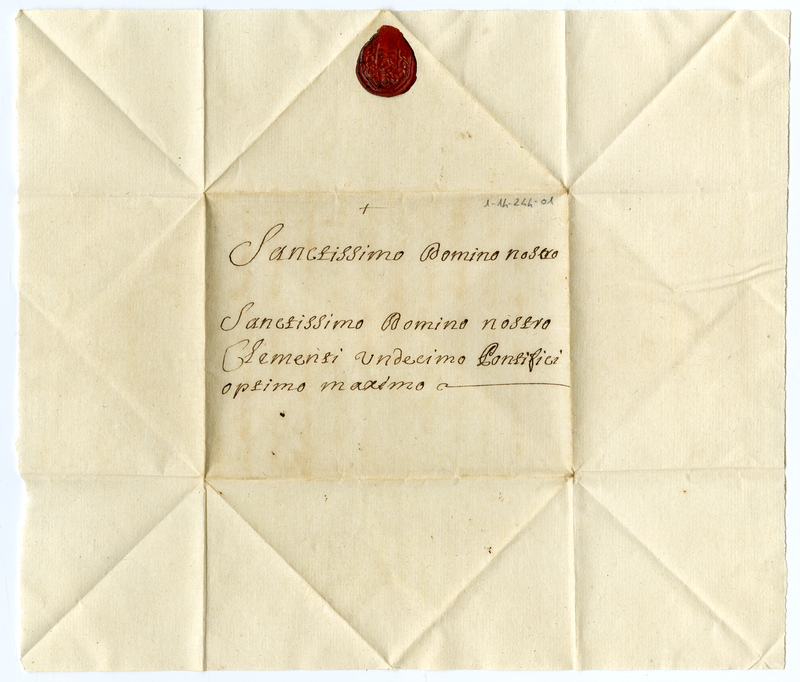 +
1-14-244-01
Sanctissimo Domino nostro
Sanctissimo Domino nostro
Clementi undecimo Pontifici
optimo maximo